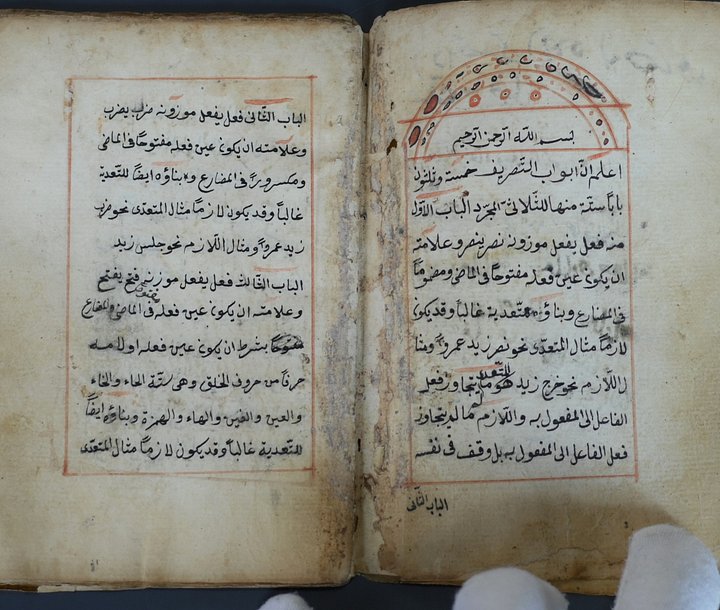 بسم الله الرحمن الرحيم
اعلم انّ ابواب التصريف خمسة وثلثون
بابا ستّة منها للثّلاثى المجرّد الباب الاوّل
منه فعل يفعل موزونه نصر ينصر وعلامته
ان يكون عين فعله مفتوحًا فى الماضى ومضمومًا
فى المضارع وبناؤه للتّعدية غالبًا وقد يكون
لازمًا مثال المتعدّى نحو نصر زيد عمروًا ومثا
ل اللّازم نحو خرج زيد المتعدى هو ما يتجاوز فعل
الفاعل الى المفعول به واللّازم ما لم يتجاوز
فعل الفاعل الى المفعول به بل وقف فى نفسه
الباب الثّانى
الباب الثّانى فعل يفعل موزونه ضرب يضرب
وعلامته ان يكون عين فعله مفتوحًا فى الماضى
ومكسورًا فى المضارع وبناؤه ايضًا للتّعدية
غالبًا وقد يكون لازمًا مثال المتعدّى نحو ضرب
زيد عمروًا ومثال اللّازم نحو جلس زيد
الباب الثّالث فعل يفعل موزنه فتح يفتح
وعلامته ان يكون عين فعله فى الماضى والمضارع
مفتوحًا بشرط ان يكون عين فعله او لامه
حرفًا من حروف الحلق وهى ستّة الحاء والخاء
والعين والغين والهاء والهمزة وبناؤه ايضًا
للتّعدية غالبًا وقد يكون لازمًا مثال المتعدّى